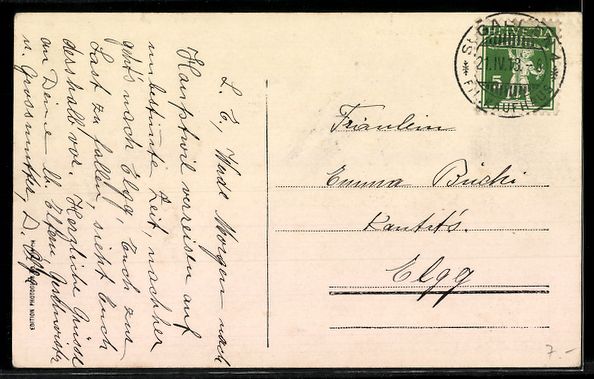 L. E, Werde Morgen nach
Hauptwil verreisen auf
unbestimmte Zeit, nachher
geht's nach Elgg, Euch zur
Last zu fallen, sieht Euch
desshalb vor. Herzliche Grüsse
an Deine lb. Eltern, Geschwister
u. Grossmutter, D.
Fräulein
Emma Büchi
Elgg
ST. GALLEN
21.IV.13.
5
7.-